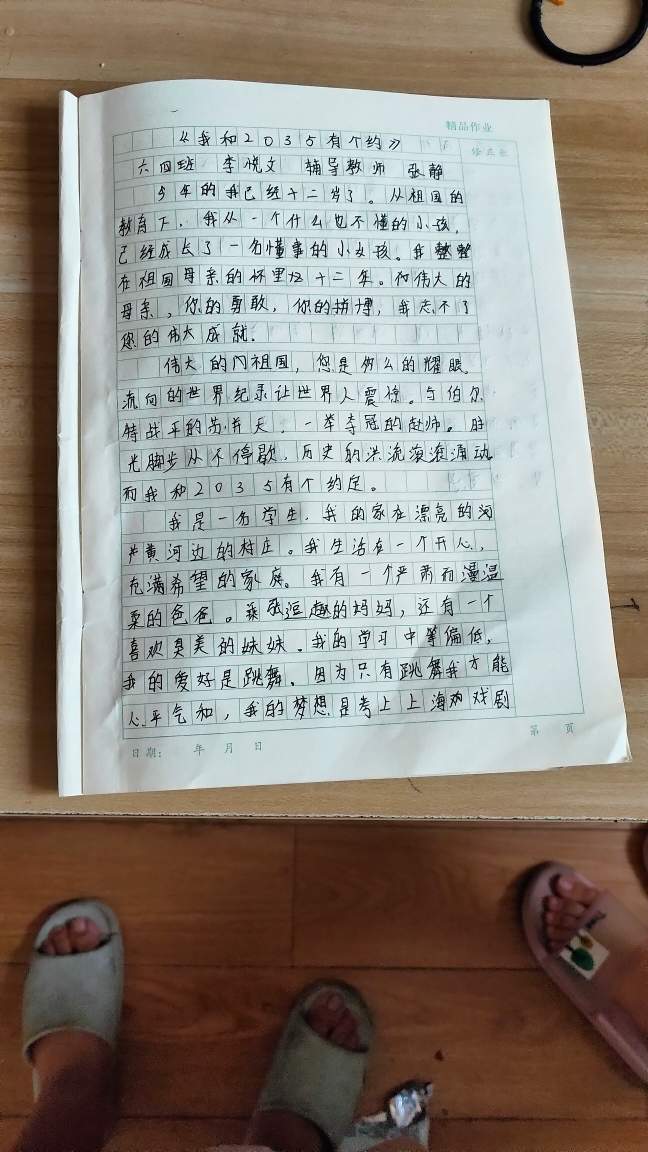 精品作业
《我和2035有个约》
六四班 李悦文 辅导教师 张静
今年的我已经十二岁了。从祖国的
教育下,我从一个什么也不懂的小孩,
已经成长了一名懂事的小女孩。我整整
在祖国母亲的怀里过十二年。伟大的
母亲,您的勇敢,你的拼博,我忘不了
您的伟大成就.
伟大的门祖国,您是多么的耀眼。
流向的世界纪录让世界人震惊。与伯尔
特战平的苏并天,一举夺冠的赵帅。时
光脚步从不停歇,历史的洪流滚滚涌动
而我和2035有个约定。
我是一名学生,我的家在漂亮的河
黄河边的村庄。我生活在一个开心,
充满希望的家庭。我有一个严肃而温
的爸爸。逗趣的妈妈,还有一个
喜欢臭美的妹妹.我的学习中等偏低,
我的爱好是跳舞、因为只有跳舞我才能
心平气和,我的梦想是考上上海戏剧
日期: 年 月 日
第 页